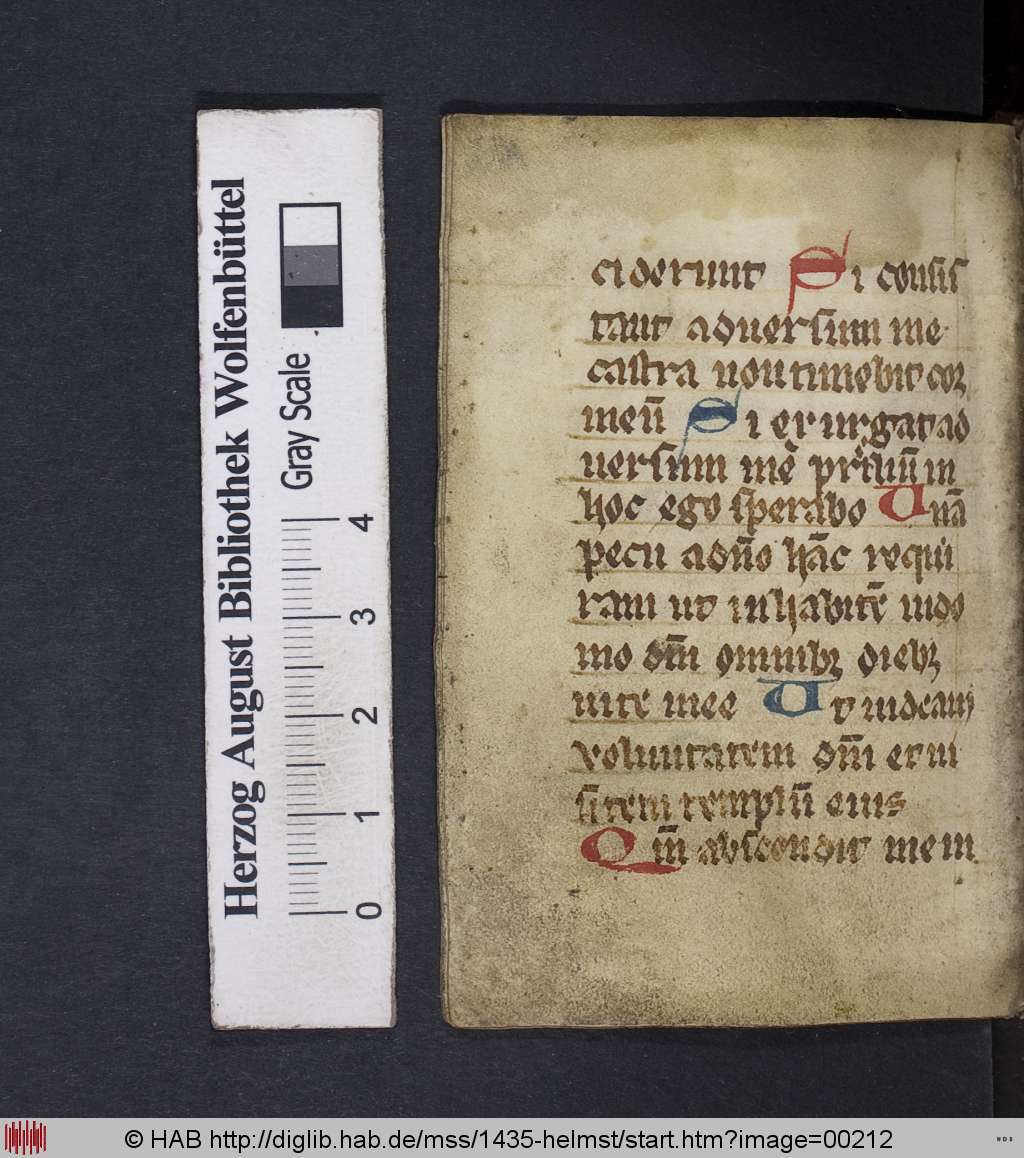 Herzog August Bibliothek Wolfenbüttel
Gray Scale
0 1 2 3 4
ciderunt Si consis
tant aduersum me
castra non timebit cor
meū Si exurgat ad
uersum mē preliū in
hoc ego sperabo Unā
pecii adn̄o hāc requi
ram ut inhabitē indo
mo dn̄i omnibꝫ diebꝫ
uite mee Ut uideam
voluntatem dn̄i et ui
sitem templū eius
Qm̄ abscondit me in
© HAB http://diglib.hab.de/mss/1435-helmst/start.htm?image=00212